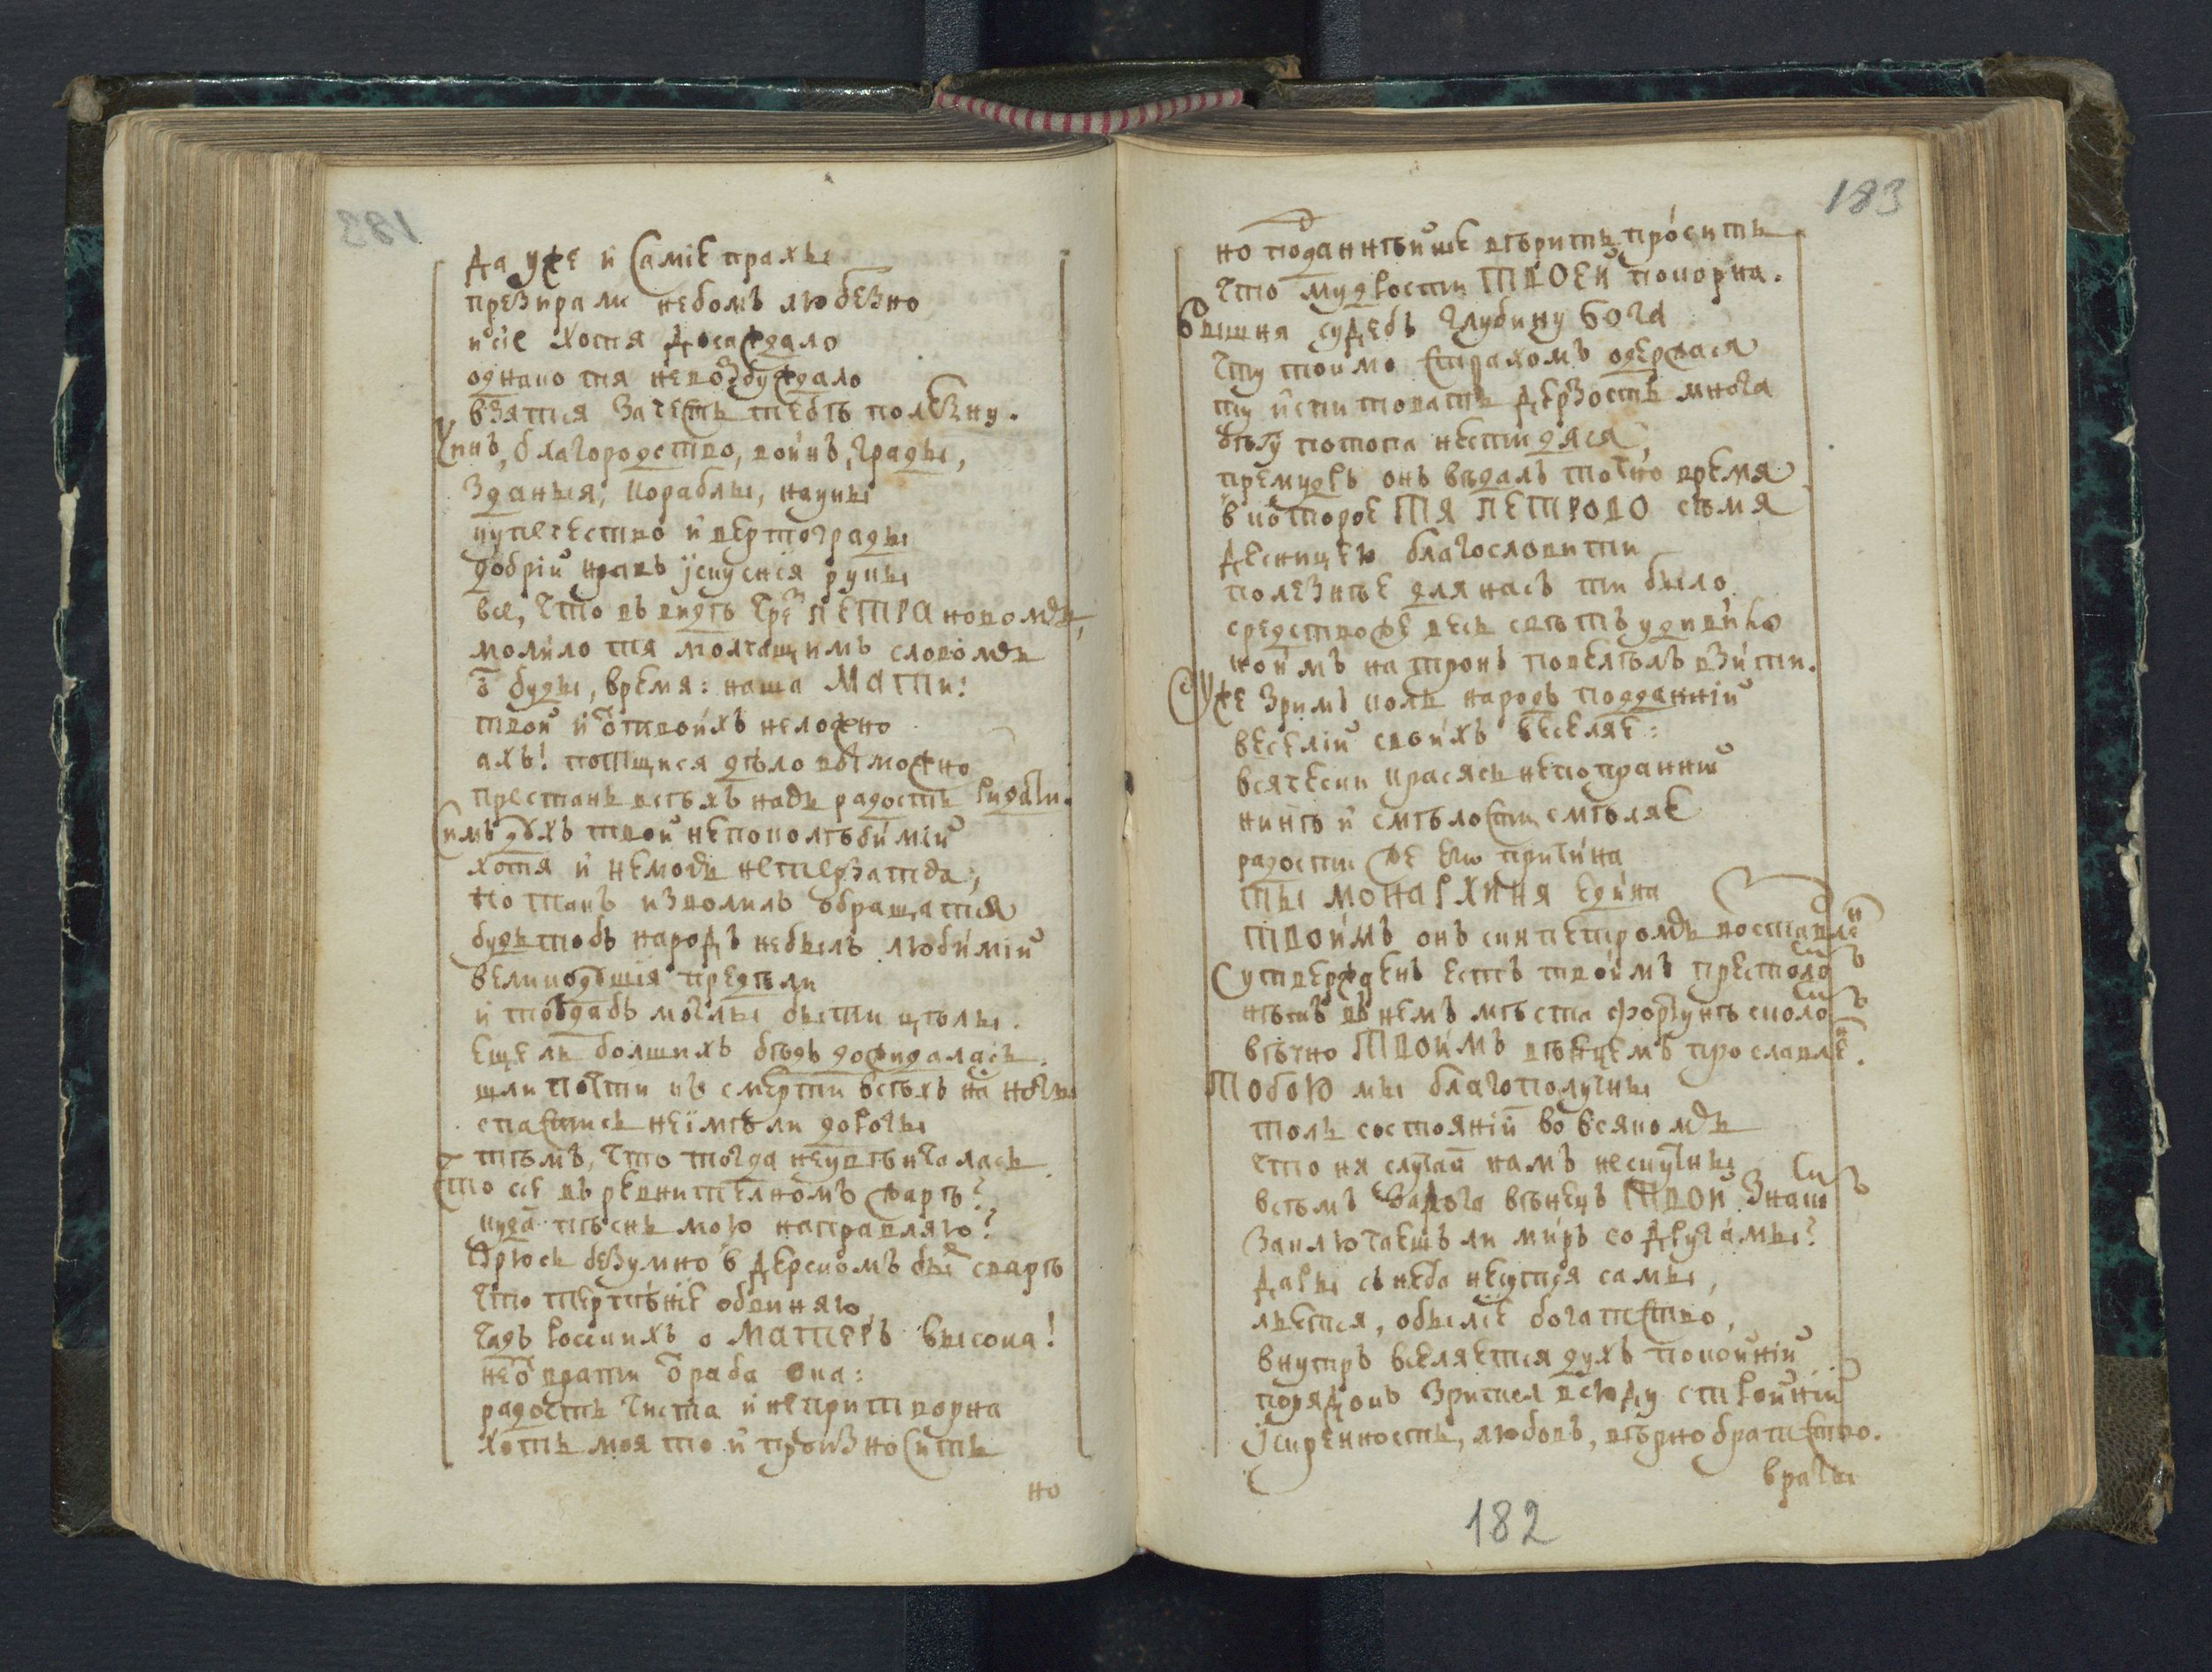 Да уже и самїе прахы
презирали небомъ любезно
и сїе хотя досаждало
однако тя невозбуждало
взятися за честь тебѣ полезну.
Чинъ, благородство, воинъ, грады,
зданыя, кораблы, науки
купечество и вертограды
добрїй нравъ искуснїя руки
все, что въ видѣ чрез ПЕТРА новомъ,
молило тя молчащимъ словомъ
о буды, время: наша МАТИ!
твой и ѿ твоихъ неложно
ахъ! потщися дѣло возможно
престань всѣхъ надъ радость ридати.
Симъ духъ твой непоколѣбимїй
хотя и неможе нетерзатса,
но такъ изволилъ обращатися
будьтобъ народъ небылъ любимїй
великодушїя предѣли
и тогдабъ моглы быти цѣлы.
Ещель болшихъ бѣдъ дожидалась
шли почти къ смерти всѣхъ на ногы
спастись неимѣли дорогы
тѣмъ, что тогда неувѣнчалась
Что се въ ревнителномъ жарѣ?
куда пѣснь мою направляю?
Прюсь безумно в дерскомъ бы сварѣ
что терпѣнїе обвиняю,
чадъ россииxъ о МАТЕРЪ высока!
не ѿврати ѿ раба ока:
радость чиста и непритворна
хоть моя то и произносить
но
183
но поданнѣйше вѣрить, просить
что мудрости ТВОЕЙ покорна.
Вышня судебъ глубину бога
чту токмо страхомъ одержася
ту испитовать дерзость многа
бѣгу потопа нестидяся,
премудръ онъ видалъ точно время
в которое ТЯ ПЕТРОВО сѣмя
десницею благословити
полезнѣе для насъ ти было
средствоже весь свѣтъ удивило
коимъ на тронъ повелѣлъ взити.
Уже зримъ коль народъ подданнїй
веселїй своихъ веселяе:
всячески красясь непопранний
нинѣ и смѣлости смѣляе
радости же его причина
ты МОНАРХИНЯ едина
ТВОИМЪ онъ скипетромъ воставлен
утвержденъ есть твоимъ престоломъ
нѣсть въ немъ мѣста фортунѣ сколомъ
вѣчно ТВОИМЪ вѣнцемъ прославлен.
ТОБОЮ мы благополучны
толь состоянїй во всякомъ
что ня случай намъ нескучны
всѣмъ залога вѣнецъ ТВОЙ знакомъ
заключаешъ ли миръ со другамы?
дары съ неба несутся самы,
льется, обылїе богатство,
внутръ вселяется духъ покойнїй
порядокъ зрится всюду стройнїй
искренность, любовъ, вѣрно братство.
врагы
182